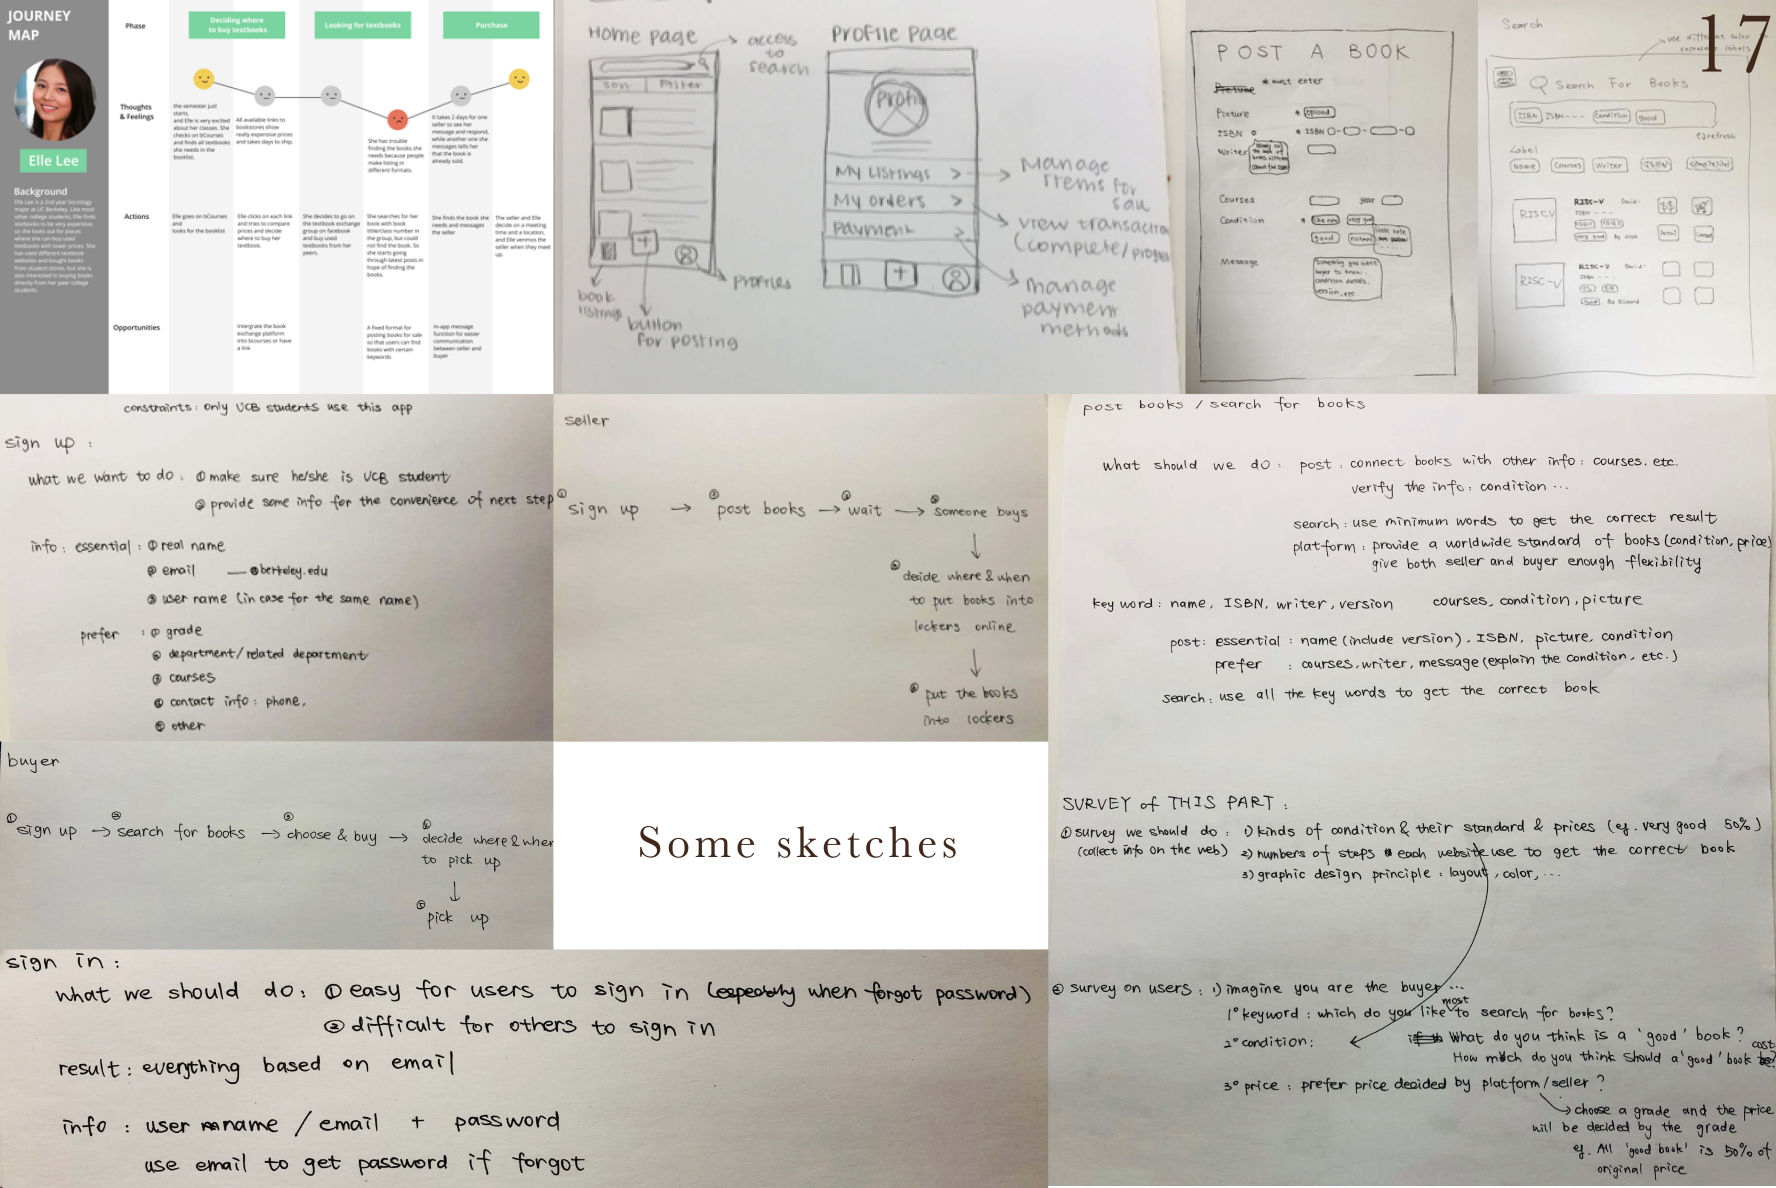 JOURNEY
MAP
Elle Lee
Background
Elle Lee is a 2nd year Sociology
major at UC Berkeley. Like most
other college students, Elle finds
textbooks to be very expensive,
so she looks out for places
where she can buy used
textbooks with lower prices. She
has used different textbook
websites and bought books
from student stores, but she is
also interested in buying books
directly from her peer college
students.
Phase
Deciding where
to buy textbooks
Looking for textbooks
Purchase
Thoughts
& Feelings
the semester just
starts,
and Elle is very excited
about her classes. She
checks on bCourses
and finds all textbooks
she needs in the
booklist.
All available links to
bookstores show
really expensive prices
and takes days to ship.
She has trouble
finding the books she
needs because people
make listing in
different formats.
It takes 2 days for one
seller to see her
message and respond,
while another one she
messages tells her
that the book is
already sold.
Actions
Elle goes on bCourses
and
looks for the booklist
Elle clicks on each link
and tries to compare
prices and decide
where to buy her
textbook.
She decides to go on
the textbook exchange
group on facebook
and buy used
textbooks from her
peers.
She searches for her
book with book
title/class number in
the group, but could
not find the book. So
she starts going
through latest posts in
hope of finding the
books.
She finds the book she
needs and messages
the seller
The seller and Elle
decide on a meeting
time and a location,
and Elle venmos the
seller when they meet
up.
Opportunities
Intergrate the book
exchange platform
into bcourses or have
a link
A fixed format for
posting books for sale
so that users can find
books with certain
keywords
In-app message
function for easier
communication
between seller and
buyer
Home page
access
to
search
Sort Filter
book
listings
button
for posting
profiles
Profile page
Profile
My Listings >
My orders >
Payment >
Manage
Items for
sale
view transaction
(complete/progress
manage
payment
methods
POST A BOOK
Picture
* must enter
Picture * upload
ISBN * ISBN
Writer
Courses year
Condition * like new very good
good normal
Message
something you want
buyer to know.
condition details,
version, etc.
17
Search
use different color to
represent labels
Search For Books
ISBN ISBN--- Condition good
refresh
Label
Name Courses Writer ISBN Condition
RISC-V
RISC-V
ISBN ---
very good
RISC-V
RISC-V
ISBN ---
Good By Richard
constraints: only UCB students use this app
sign up :
what we want to do : ① make sure he/she is UCB student
② provide some info for the convenience of next step
info : essential : ① real name
② email — @berkeley.edu
③ user name (in case for the same name)
prefer : ① grade
② department/related department
③ courses
④ contact info : phone,
⑤ other
seller
① sign up → ② post books → ③ wait → ④ someone buys
⑤ decide where & when
to put books into
lockers online
⑥ put the books
into lockers
post books / search for books
what should we do : post : connect books with other info : courses, etc.
verify the info : condition ...
search : use minimum words to get the correct result
platform : provide a worldwide standard of books (condition, price)
give both seller and buyer enough flexibility
key word : name, ISBN, writer, version courses, condition, picture
post : essential : name (include version), ISBN, picture, condition
prefer : courses, writer, message (explain the condition, etc.)
search : use all the key words to get the correct book
buyer
① sign up → ② search for books → ③ choose & buy → ④ decide where & when
to pick up
⑤ pick up
Some sketches
SURVEY of THIS PART :
① survey we should do : 1) kinds of condition & their standard & prices (eg. very good 50%)
(collect info on the web) 2) numbers of steps each website use to get the correct book
3) graphic design principle : layout, color, ...
② survey on users : 1) imagine you are the buyer ...
1° keyword : which do you like most to search for books?
2° condition: What do you think is a 'good' book?
How much do you think should a 'good' book cost?
3° price : prefer price decided by platform/seller ?
choose a grade and the price
will be decided by the grade
eg. All 'good book' is 50% of
original price
sign in :
what we should do : ① easy for users to sign in (especially when forgot password)
② difficult for others to sign in
result : everything based on email
info : user name / email + password
use email to get password if forgot